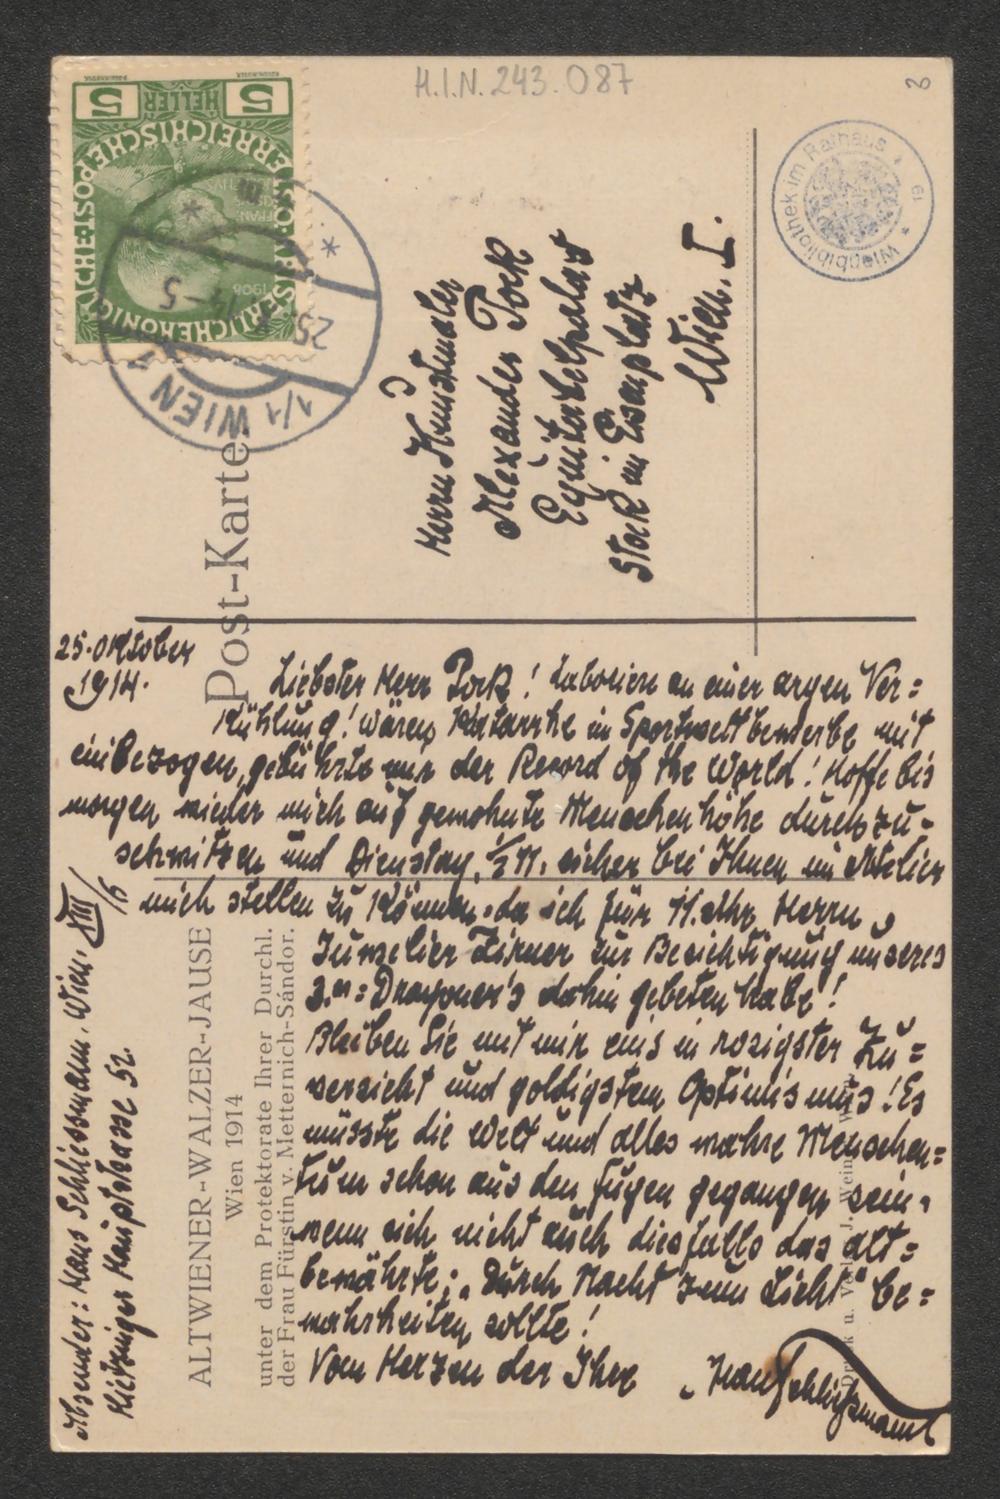 H.I.N. 243.087
3
Wienbibliothek im Rathaus * 61 *
5 HELLER 5
KAISERLICHE KÖNIGLICHE ÖSTERREICHISCHE POST
1908
1/1 WIEN 1
25.
14-5
Post-Karte
Herrn Kunstmaler
Alexander Pock
Equitablepalast
Stock im Eisenplatz
Wien. I.
25. Oktober
1914.
Liebster Herr Pock! Laboriere an einer argen Ver=
kühlung! wären Katarrhe in Sportwettbewerbe mit
einbezogen, gebührte mir der Record of the World! Hoffe bis
morgen wieder mich auf gewohnte Menschenhöhe durchzu-
schwitzen und Dienstag, ½11. sicher bei Ihnen im Atelier
mich stellen zu können, da ich für 11. Uhr Herrn
Juwelier Zirner zur Besichtigung unseres
3.er = Dragoner's dahin gebeten habe!
Bleiben Sie mit mir eins in rosigster Zu=
versicht und goldigstem Optimismus! Es
müsste die Welt und alles wahre Menschen=
tum schon aus den Fugen gegangen sein,
wenn sich nicht auch diesfalls das alt=
bewährte: „Durch Nacht zum Licht" be=
wahrheiten sollte!
Vom Herzen der Ihre
Hans Schließmann
Absender: Hans Schliessmann. Wien. XIII/6
Hietzinger Hauptstrasse 52.
ALTWIENER-WALZER-JAUSE
Wien 1914
unter dem Protektorate Ihrer Durchl.
der Frau Fürstin v. Metternich-Sándor.
Druck u. Verlag J. Weiner, Wien